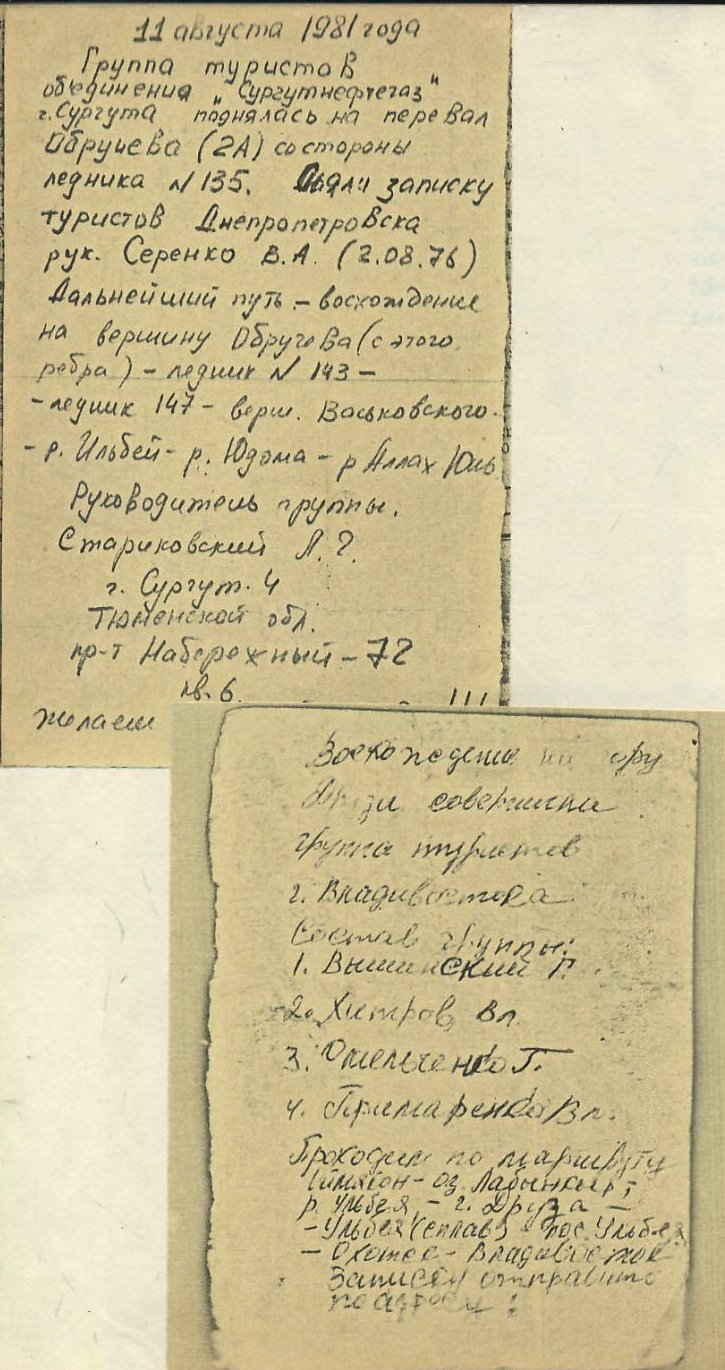 11 августа 1981 года
Группа туристов
объединения "Сургутнефтегаз"
г. Сургута поднялась на перевал
Обручева (2А) со стороны
ледника N 135. Сняли записку
туристов Днепропетровска
рук. Серенко В.А. (2.08.76)
Дальнейший путь - восхождение
на вершину Обручева (с этого
ребра) - ледник N 143 -
- ледник 147 - верш. Васьковского -
- р. Ильбей - р. Юдома - р Аллах Юнь
Руководитель группы.
Стариковский Л.?.
г. Сургут. 4
Тюменской обл.
пр-т Набережный - 72
кв. 6.
Желаем !!!
Восхождение на гору
совершила
группа туристов
г. Владивостока
Состав группы:
1. Вышинский Г.
2. Хитров Вл.
3. Омельченко Г.
4. Примаренко Вл.
Проходим по маршруту
- оз. Лабынкыр,
р. Ульбея, - г. Друза -
- Ульбея (сплав) - пос. Ульбея
- Охотск - Владивосток
Записку отправить
по адресу: